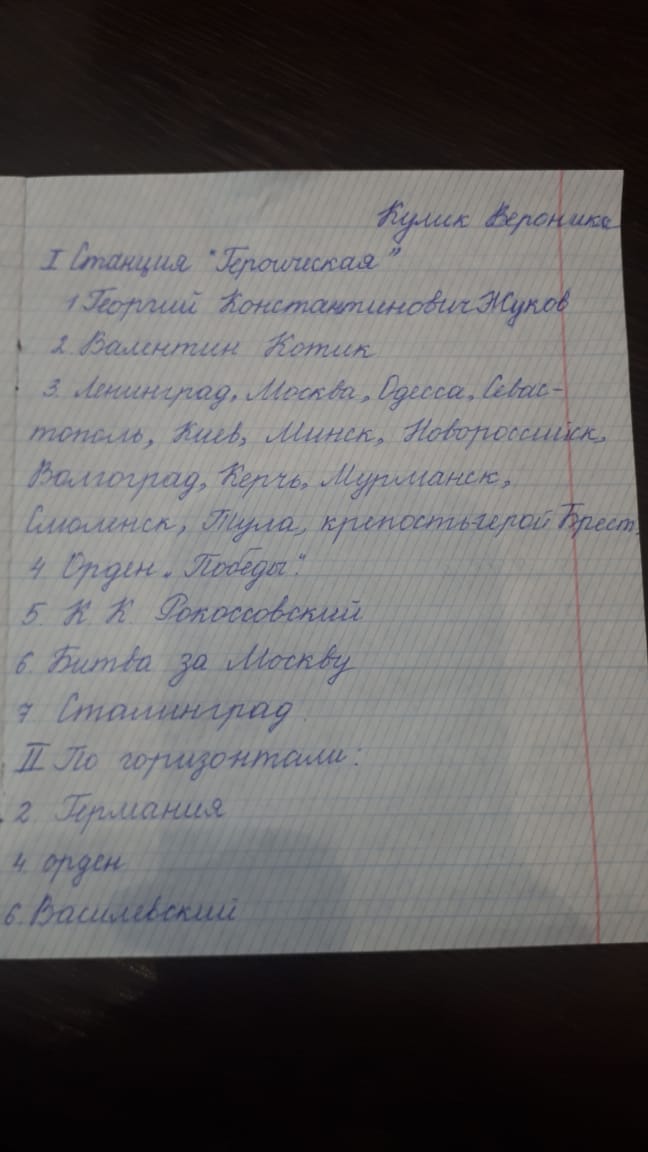 Кулик Вероника
I Станция "Героическая"
1 Георгий Константинович Жуков
2. Валентин Котик
3. Ленинград, Москва, Одесса, Севас-
тополь, Киев, Минск, Новороссийск,
Волгоград, Керчь, Мурманск,
Смоленск, Тула, крепость-герой Брест.
4 Орден „Победы".
5. К К. Рокоссовский
6. Битва за Москву
7 Сталинград
II По горизонтали:
2 Германия
4. орден
6. Василевский